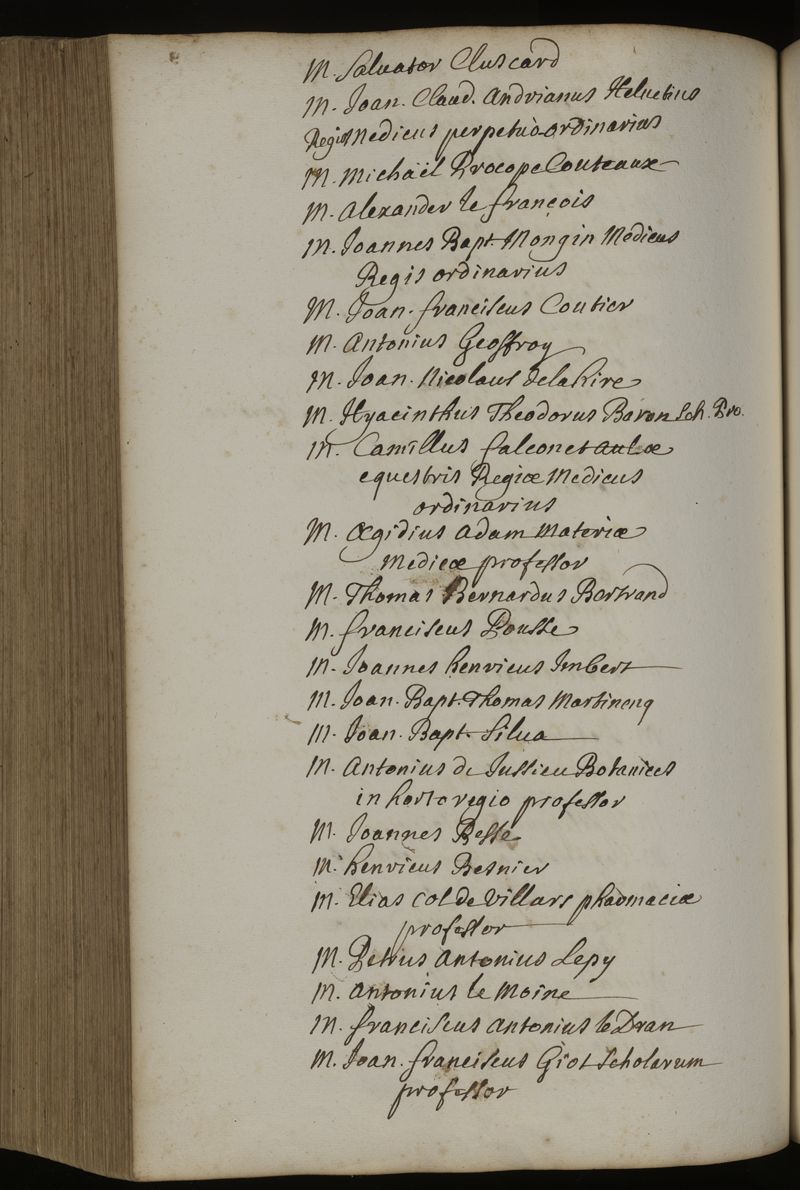 M. Saluator Cluscard
M. Joan. Claud. Andrianus Heluetius
Regis Medicus perpetuò ordinarius
M. Michaël Procope Couteaux
M. Alexander le françois
M. Joannes Bapt. Mongin Medicus
Regis ordinarius
M. Joan. franciscus Coutier
M. Antonius Geoffroy
M. Joan. Nicolaus delahire
M. Hyacinthus Theodorus Baron Sch. Pro.
M. Camillus falconet aulæ
equestris Regiæ Medicus
ordinarius
M. Ægidius Adam Materiæ
Medicæ professor
M. Thomas Bernardus Bertrand
M. franciscus Pousse
M. Joannes henricus Imbert
M. Joan. Bapt. Thomas Martinenq
M. Joan. Bapt. Silua
M. Antonius de Jussieu Botanices
in horto regio professor
M. Joannes Besse
M. henricus Besnier
M. Elias Col de Villars pharmaciæ
professor
M. Petrus Antonius Lepy
M. Antonius le Moine
M. franciscus Antonius le Dran
M. Joan. franciscus Giot Scholarum
professor